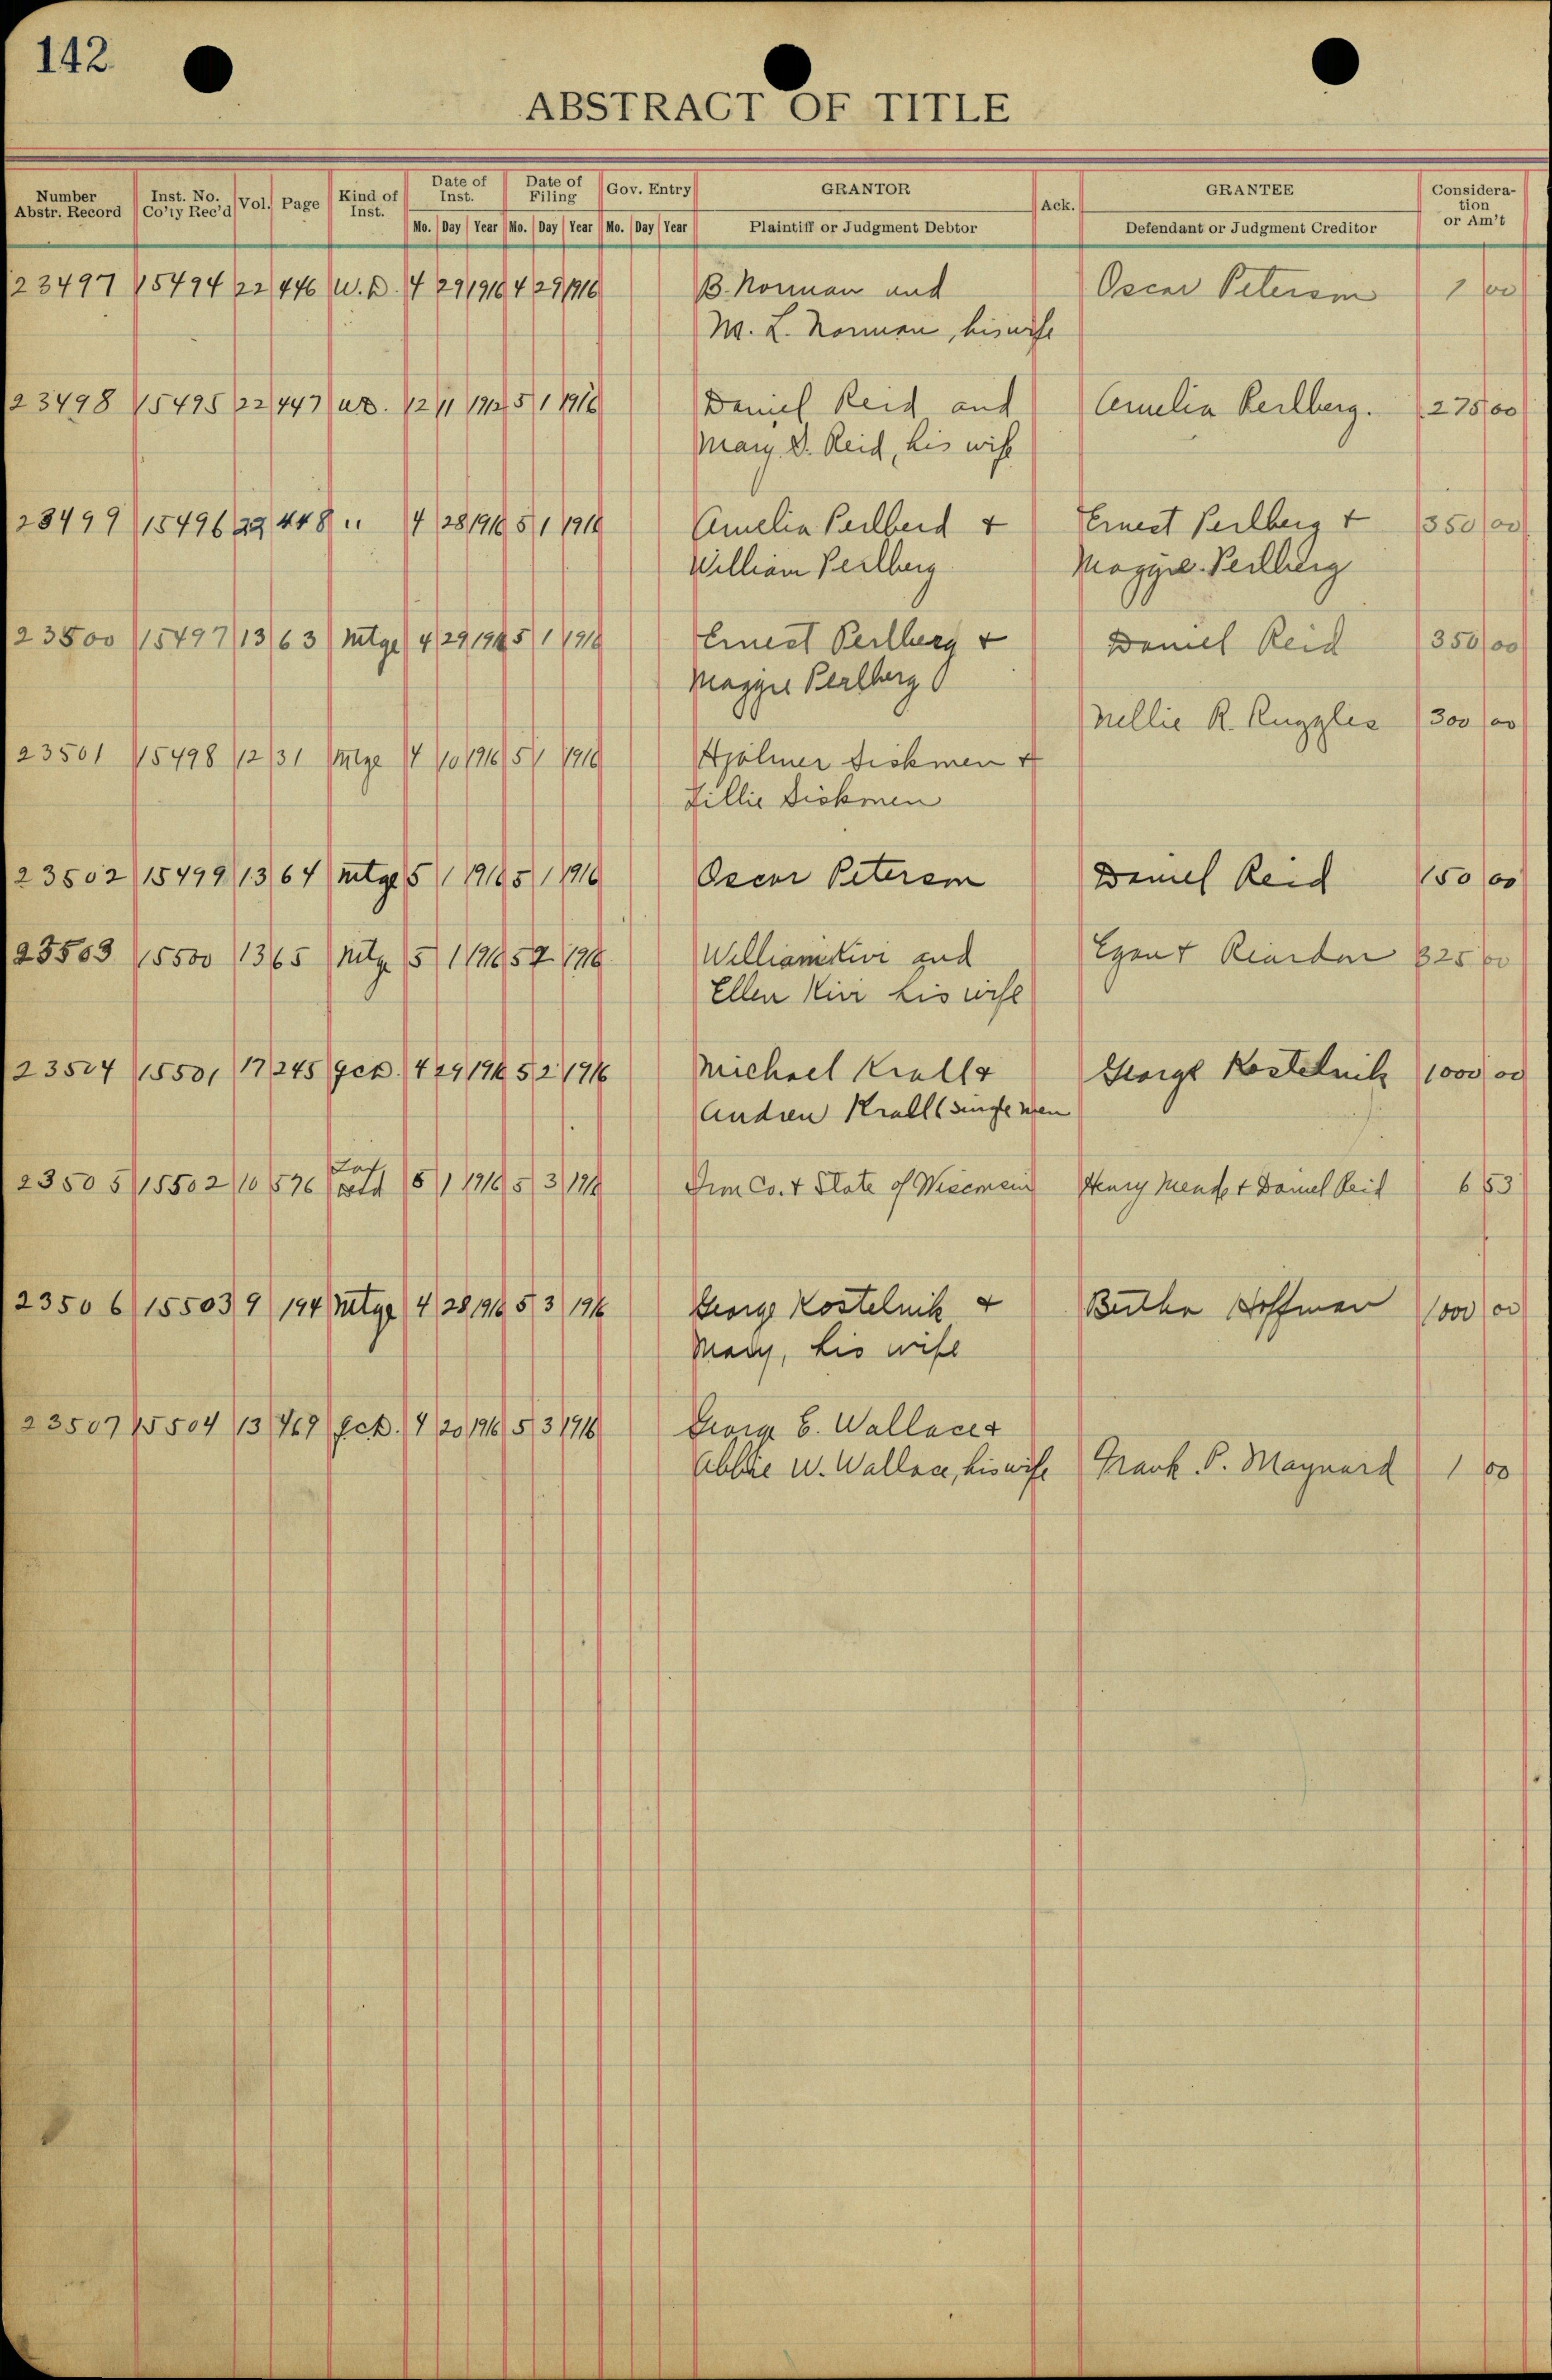 142
ABSTRACT OF TITLE
Number Abstr. Record Inst. No. Co'ty Rec'd Vol. Page Kind of Inst. Date of Inst. Date of Filing Gov. Entry GRANTOR Ack. GRANTEE Consideration or Am't
Mo. Day Year Mo. Day Year Mo. Day Year Plaintiff or Judgment Debtor Defendant or Judgment Creditor
23497 15494 22 446 W.D. 4 29 1916 4 29 1916 B. Norman and Oscar Peterson 1 00
M. L. Norman, his wife
23498 15495 22 447 W.D. 12 11 1912 5 1 1916 Daniel Reid and Amelia Perlberg. 275 00
Mary D. Reid, his wife
23499 15496 22 448 " 4 28 1916 5 1 1916 Amelia Perlberd & Ernest Perlberg & 350 00
William Perlberg Maggie Perlberg
23500 15497 13 63 Mtge 4 29 1916 5 1 1916 Ernest Perlberg & Daniel Reid 350 00
Maggie Perlberg
Nellie R. Ruggles 300 00
23501 15498 12 31 Mtge 4 10 1916 5 1 1916 Hjalmer Siskmen &
Lillie Siskmen
23502 15499 13 64 Mtge 5 1 1916 5 1 1916 Oscar Peterson Daniel Reid 150 00
23503 15500 13 65 Mtge 5 1 1916 5 2 1916 William Kivi and Egan & Riardon 325 00
Ellen Kivi his wife
23504 15501 17 245 QCD. 4 29 1916 5 2 1916 Michael Krall & George Kostelnik 1000 00
Andrew Krall (single men
23505 15502 10 576 5 1 1916 5 3 1916 Iron Co. & State of Wisconsin Henry Meade & Daniel Reid 6 53
23506 15503 9 194 Mtge 4 28 1916 5 3 1916 George Kostelnik & Bertha Hoffman 1000 00
Mary, his wife
23507 15504 13 469 QCD. 4 20 1916 5 3 1916 George E. Wallace &
Abbie W. Wallace, his wife Frank P. Maynard 1 00